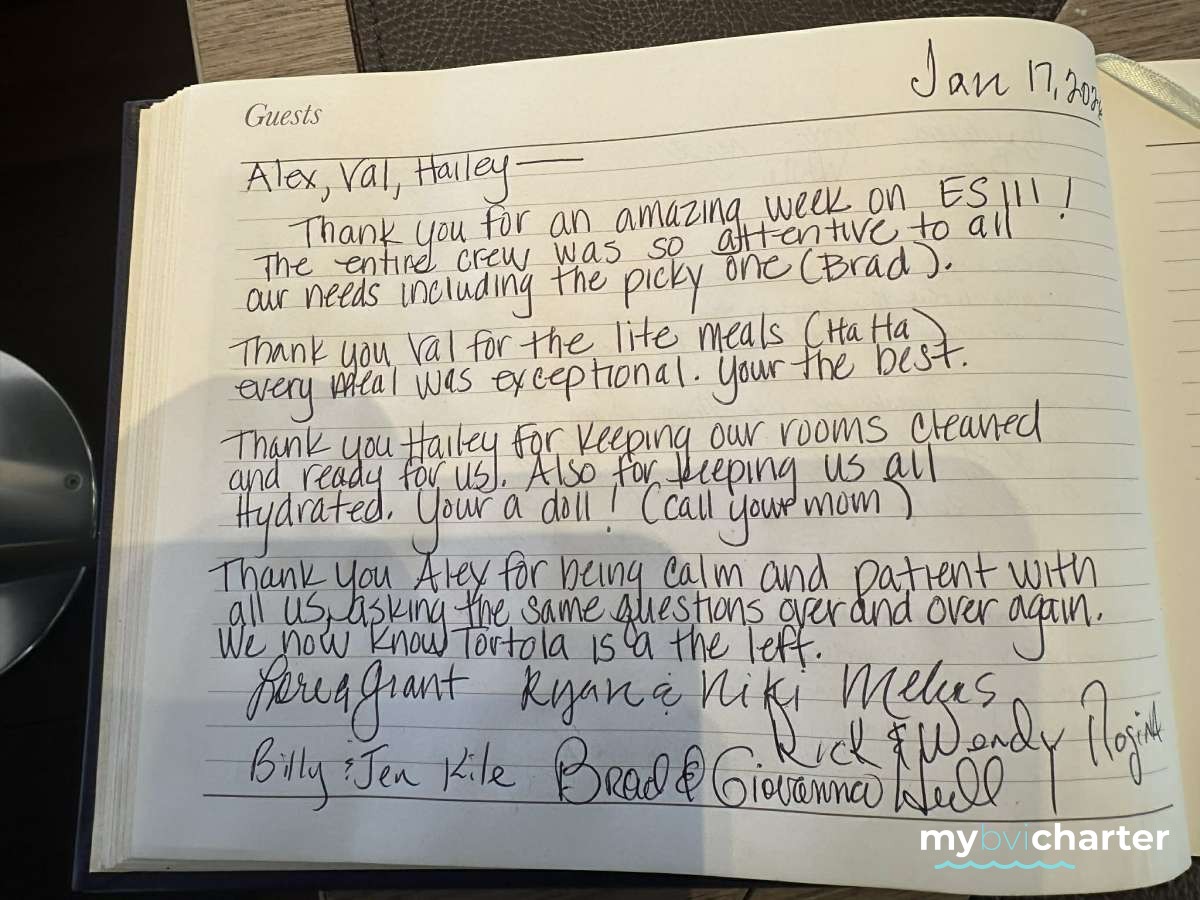 Guests
Jan 17, 202
Alex, Val, Hailey —
Thank you for an amazing week on ES III!
The entire crew was so attentive to all
our needs including the picky one (Brad).
Thank you Val for the lite meals (Ha Ha)
every meal was exceptional. Your the best.
Thank you Hailey for keeping our rooms cleaned
and ready for us). Also for keeping us all
Hydrated. Your a doll! (call your mom)
Thank you Alex for being calm and patient with
all us, asking the same questions over and over again.
We now know Tortola is a the left.
Grant Ryan & Niki
Rick & Wendy
Billy & Jen Kile Brad & Giovanna
mybvicharter